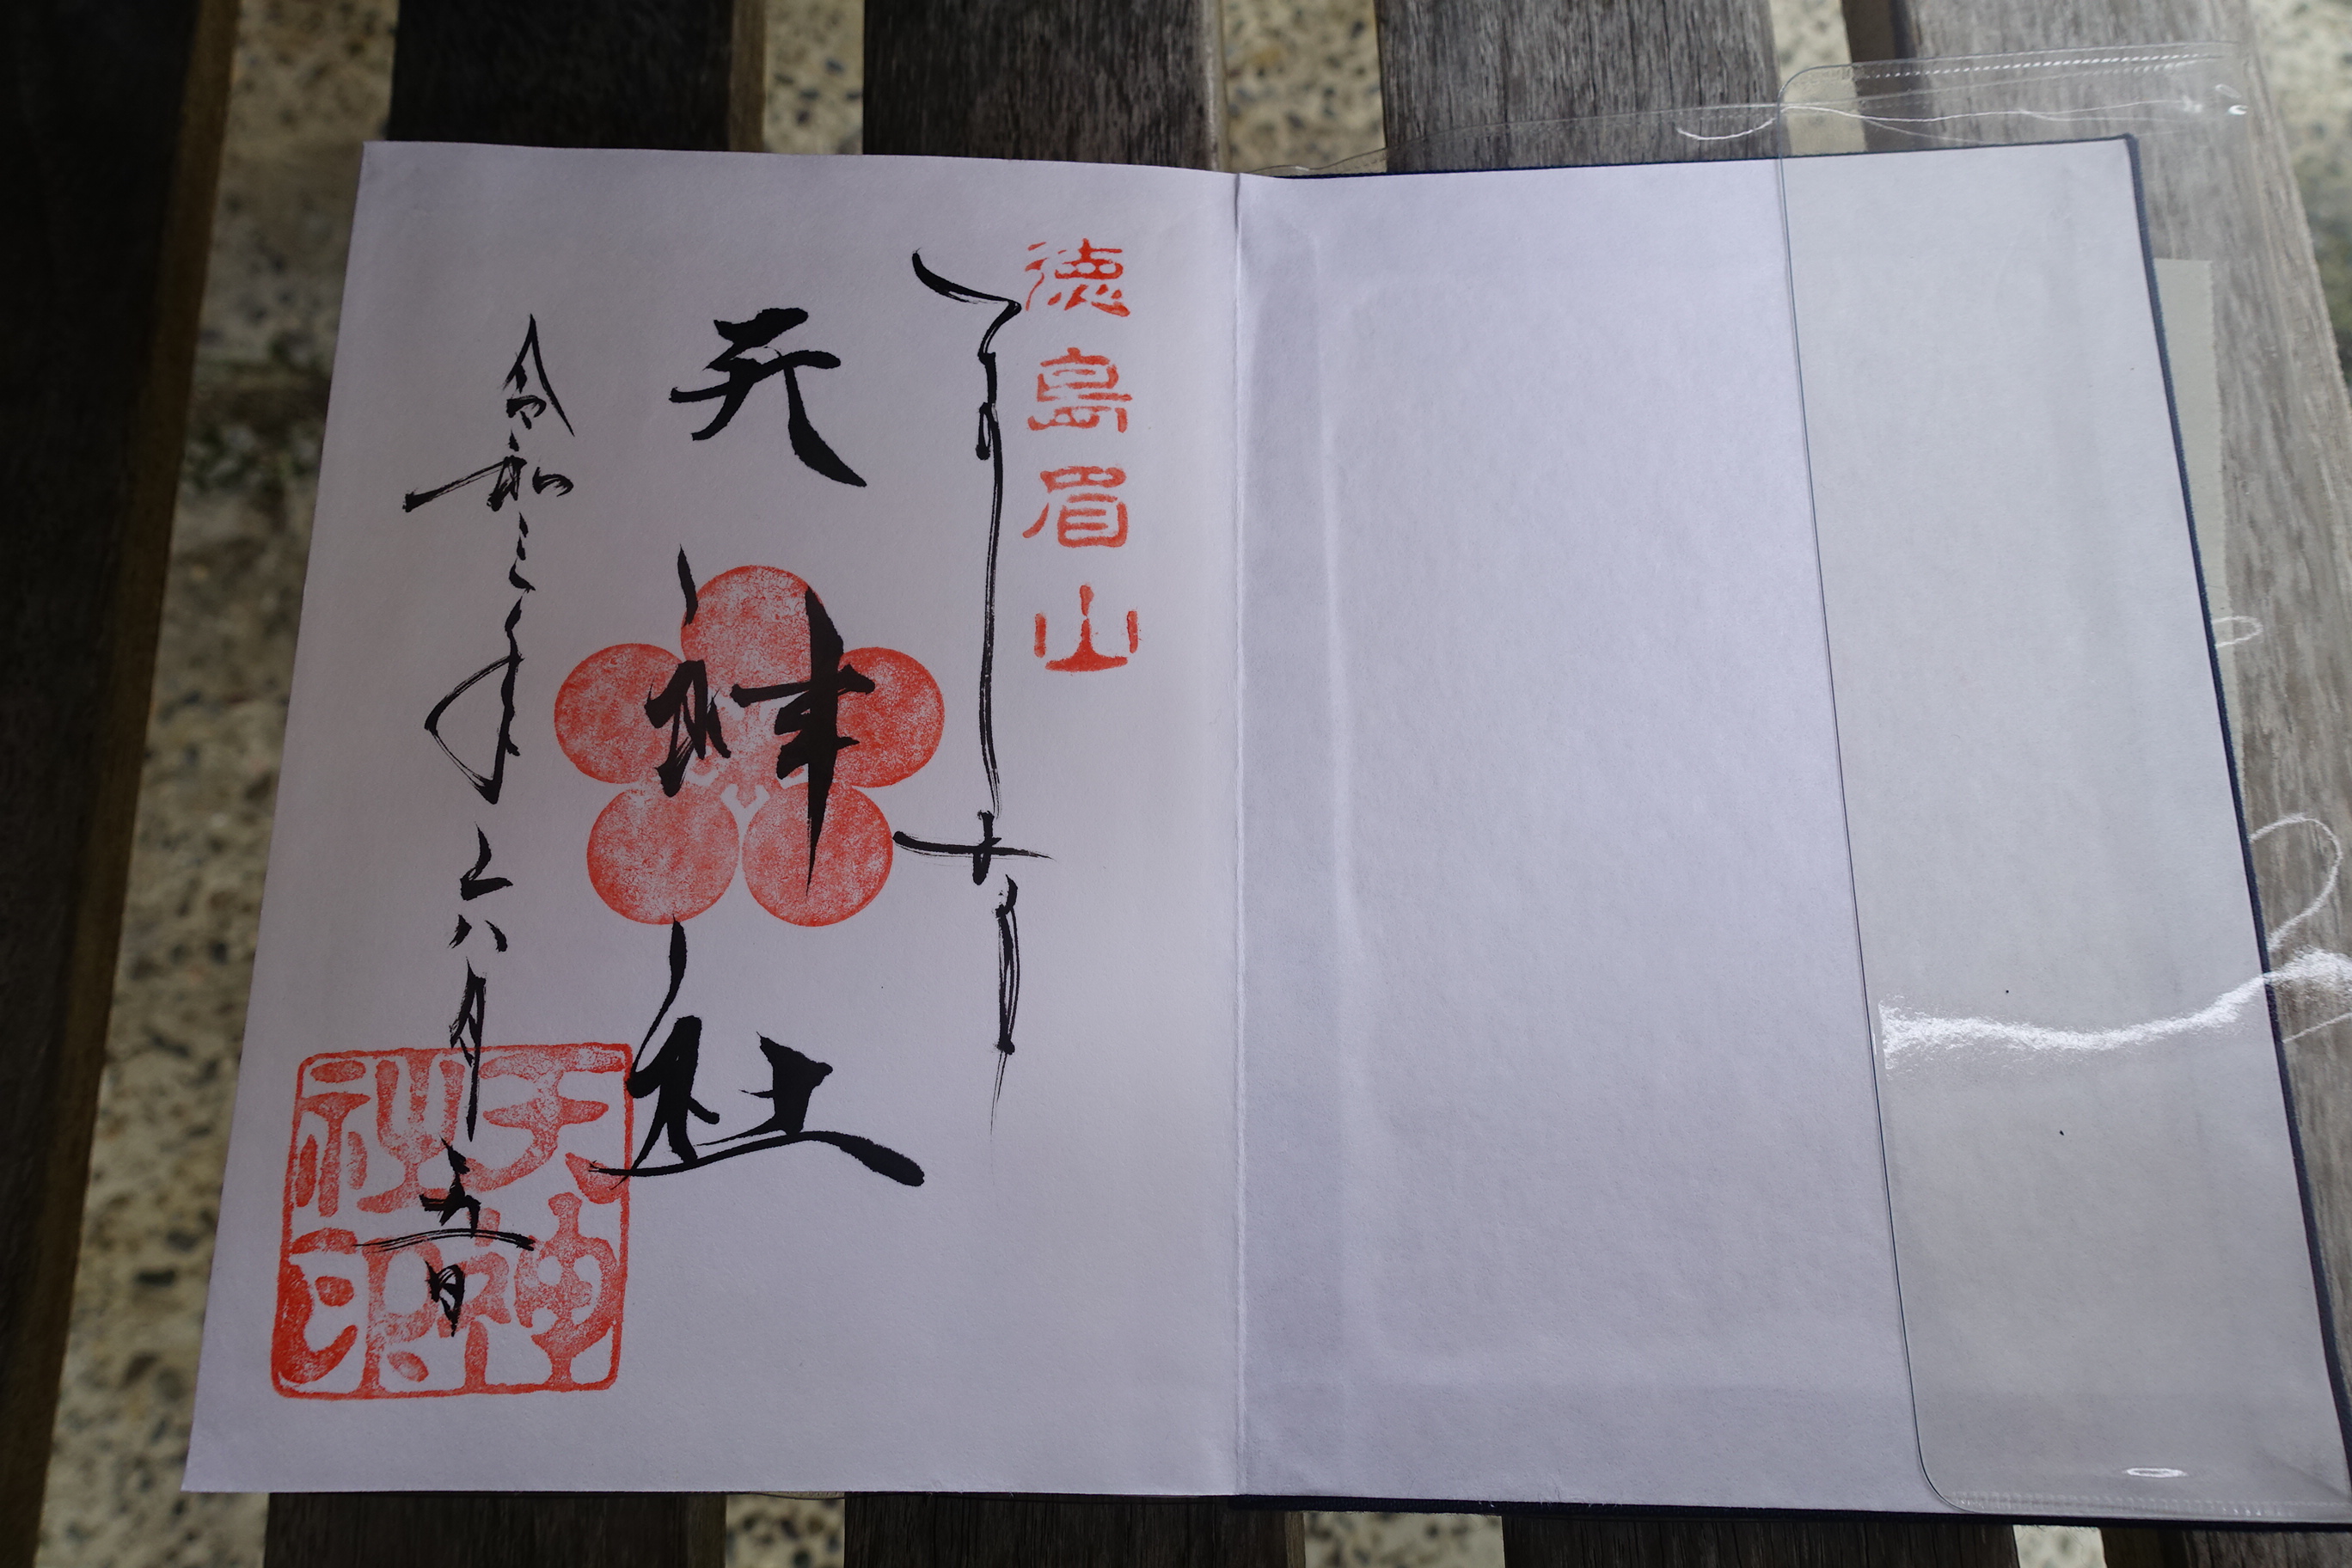 徳島眉山
奉拝
天神社
令和三年六月五日
天神
社印